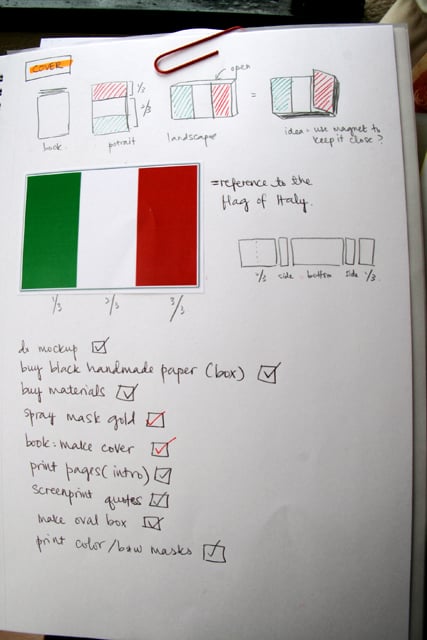 COVER
open
1/3
2/3
=
book
potrait
landscape
idea = use magnet to
keep it close?
= reference to the
flag of Italy.
1/3 side bottom side 1/3
1/3 2/3 3/3
do mockup
buy black handmade paper (box)
buy materials
spray mask gold
book: make cover
print pages (intro)
screenprint quotes
make oval box
print color/b&w masks